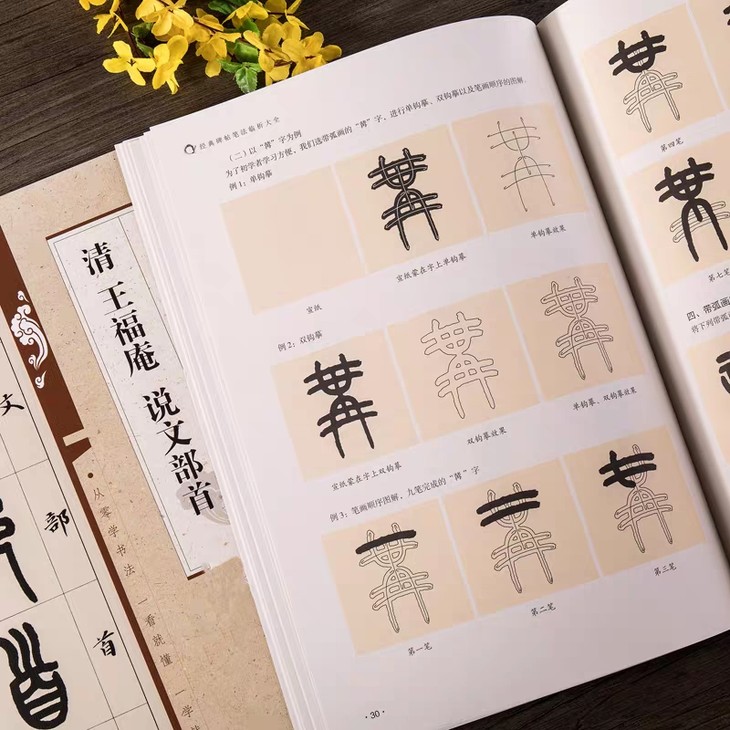 经典碑帖笔法临析大全
（二）以“冓”字为例
为了初学者学习方便，我们选带弧画的“冓”字，进行单钩摹、双钩摹以及笔画顺序的图解。
例1：单钩摹
宣纸
宣纸蒙在字上单钩摹
单钩摹效果
例2：双钩摹
宣纸蒙在字上双钩摹
双钩摹效果
单钩摹、双钩摹效果
例3：笔画顺序图解，九笔完成的“冓”字
第一笔
第二笔
第三笔
·30·
第四笔
第七笔
四、带弧画
将下列带弧
清 王福庵 说文部首
从零学书法 一看就懂 一学
文
部
首